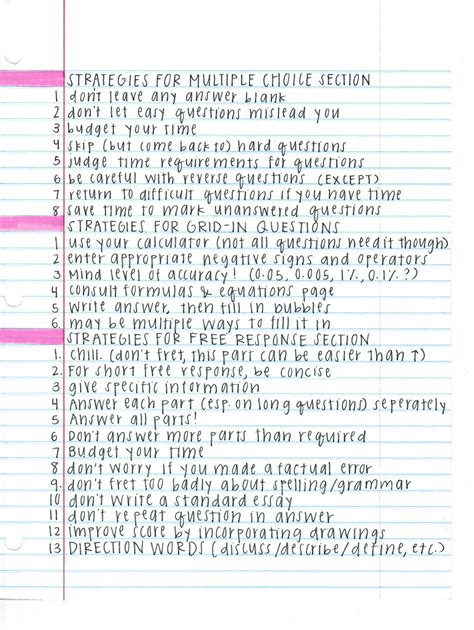 STRATEGIES FOR MULTIPLE CHOICE SECTION
1 don't leave any answer blank
2 don't let easy questions mislead you
3 budget your time
4 skip (but come back to) hard questions
5 judge time requirements for questions
6 be careful with reverse questions (EXCEPT)
7 return to difficult questions if you have time
8 save time to mark unanswered questions
STRATEGIES FOR GRID-IN QUESTIONS
1 use your calculator (not all questions need it though)
2 enter appropriate negative signs and operators
3 Mind level of accuracy! (0.05, 0.005, 1%, 0.1% ?)
4 consult formulas & equations page
5 Write answer, then fill in bubbles
6. may be multiple ways to fill it in
STRATEGIES FOR FREE RESPONSE SECTION
1. chill. (don't fret, this part can be easier than ↑)
2. For short free response, be concise
3 give specific information
4 Answer each part (esp. on long questions) seperately
5 Answer all parts!
6 Don't answer more parts than required
7 Budget your time
8 don't worry if you made a factual error
9. don't fret too badly about spelling/grammar
10 don't write a standard essay
11 don't repeat question in answer
12 improve score by incorporating drawings
13 DIRECTION WORDS (discuss/describe/define, etc.)